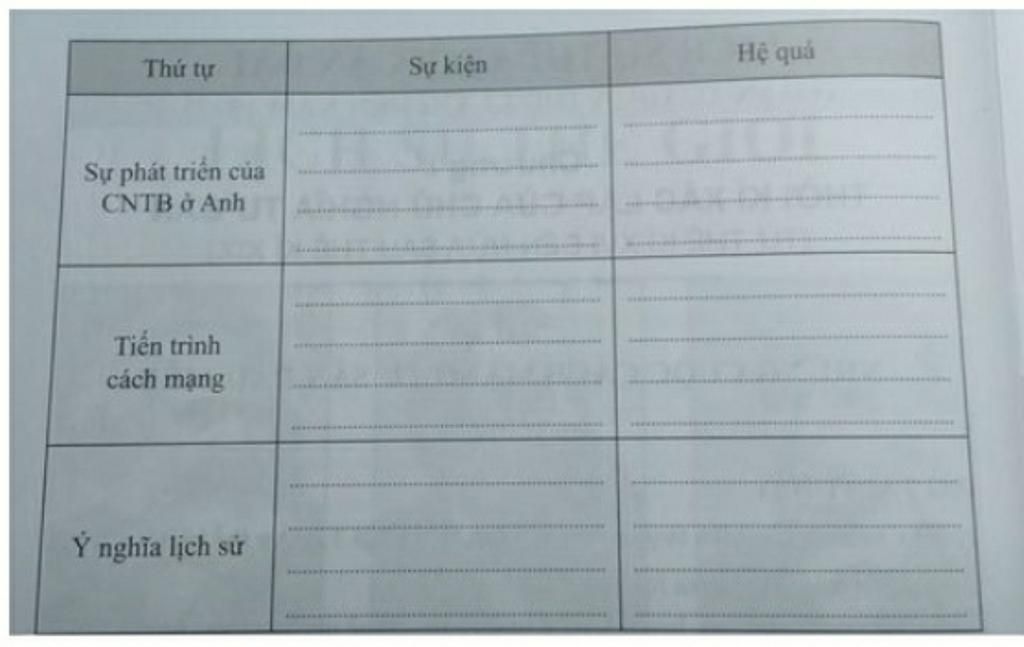 Thứ tự
Sự kiện
Hệ quả
Sự phát triển của
CNTB ở Anh
Tiến trình
cách mạng
Ý nghĩa lịch sử